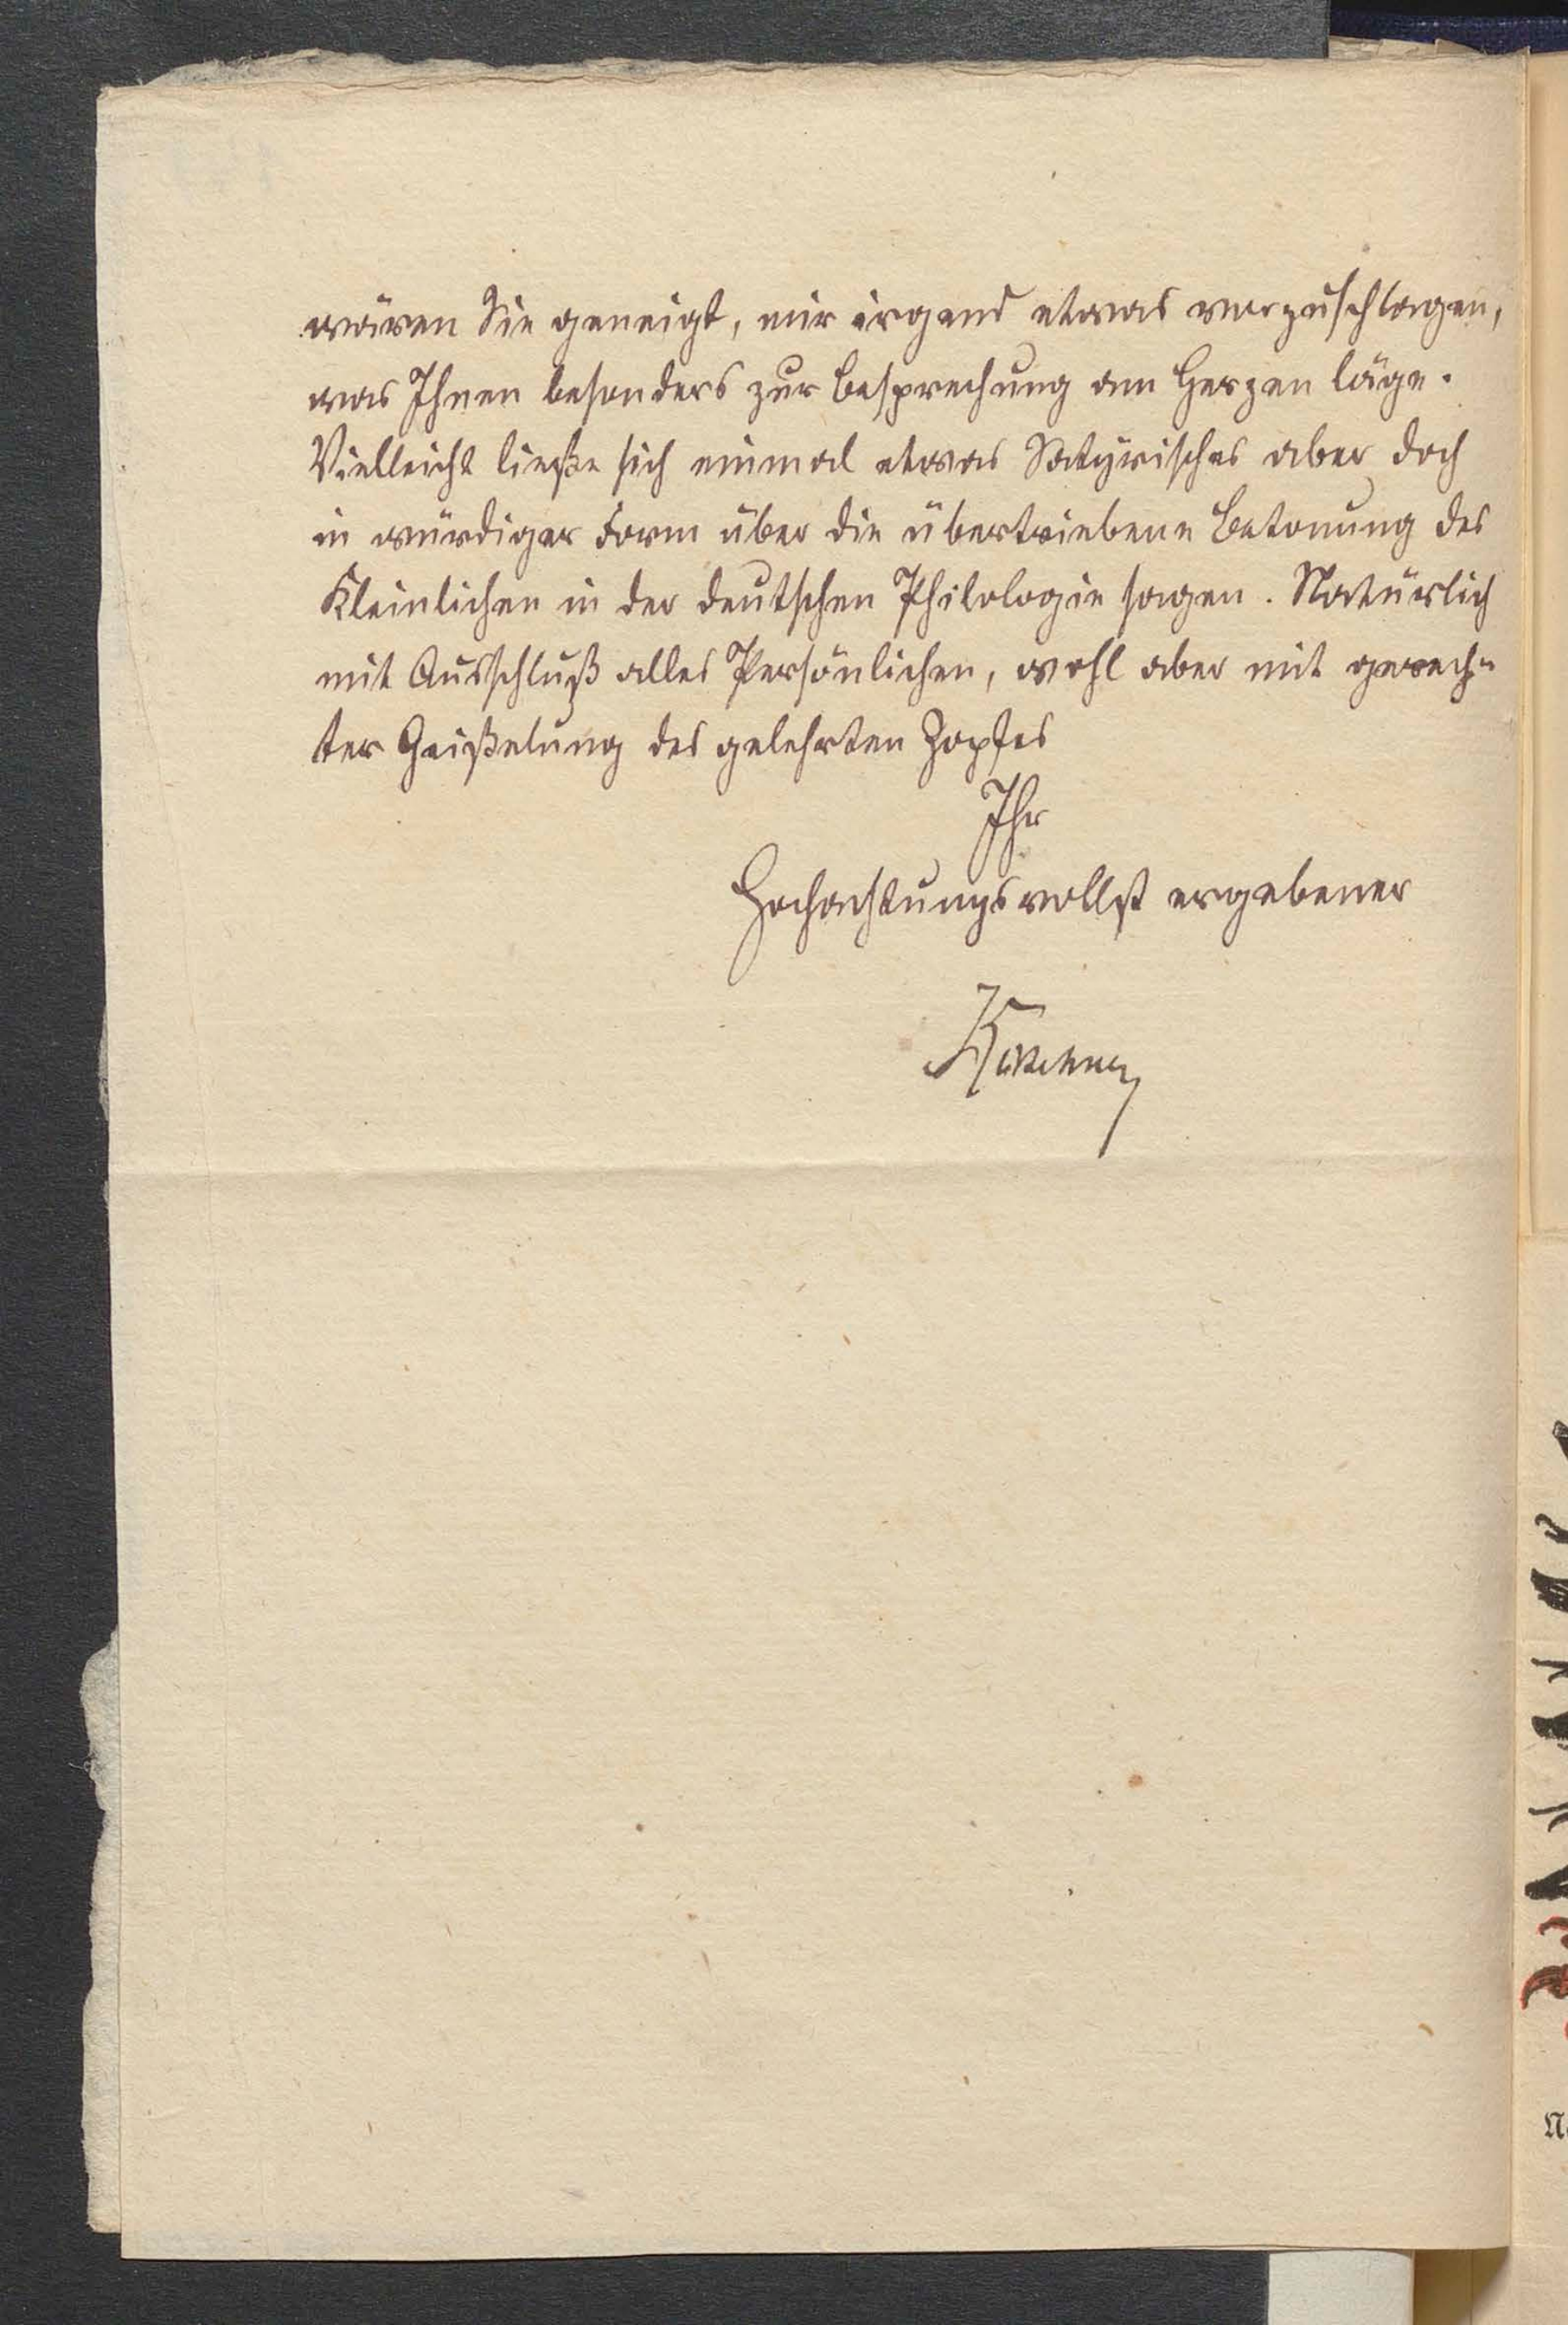 wären Sie geneigt, mir irgend etwas vorzuschlagen,
was Ihnen besonders zur Besprechung am Herzen läge.
Vielleicht ließe sich einmal etwas Satyrisches aber doch
in würdiger Form über die übertriebene Betonung des
Kleinlichen in der deutschen Philologie sagen. Natürlich
mit Ausschluß alles Persönlichen, wohl aber mit gerech-
ter Geißelung des gelehrten Zopfes
Ihr
Hochachtungsvollst ergebener
Kürschner